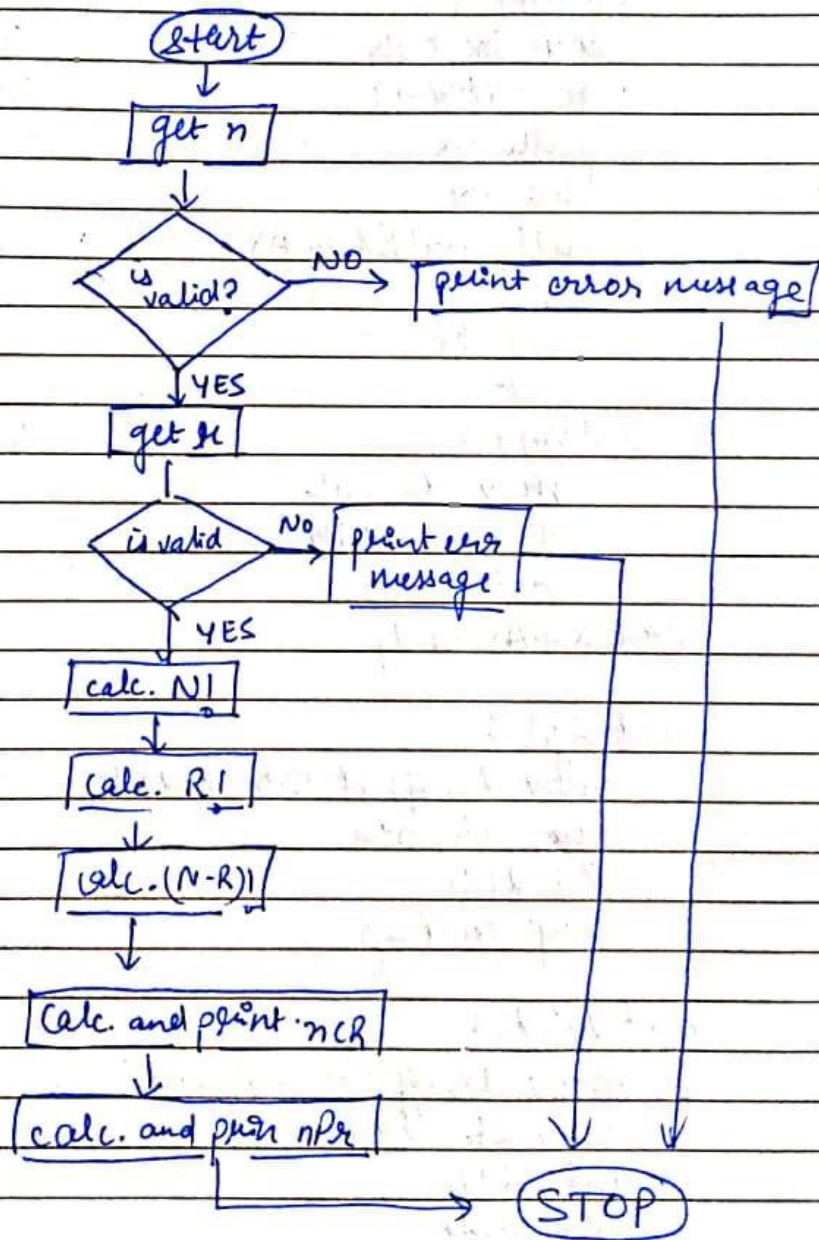 start
get n
is
valid?
NO
print error message
YES
get r
is valid
NO
print err
message
YES
calc. N!
calc. R!
calc. (N-R)!
Calc. and print nCR
calc. and prin nPr
STOP